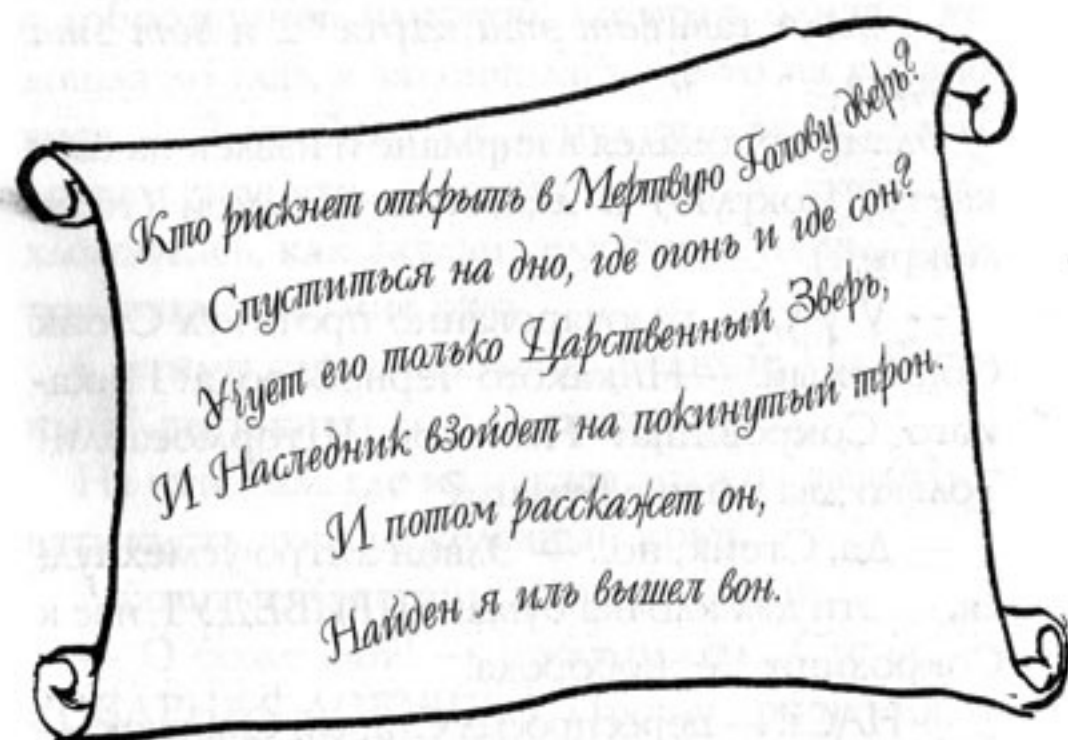 Кто рискнет открыть в Мертвую Голову дверь?
Спуститься на дно, где огонь и где сон?
Учует его только Царственный Зверь,
И Наследник взойдет на покинутый трон.
И потом расскажет он,
Найден я иль вышел вон.